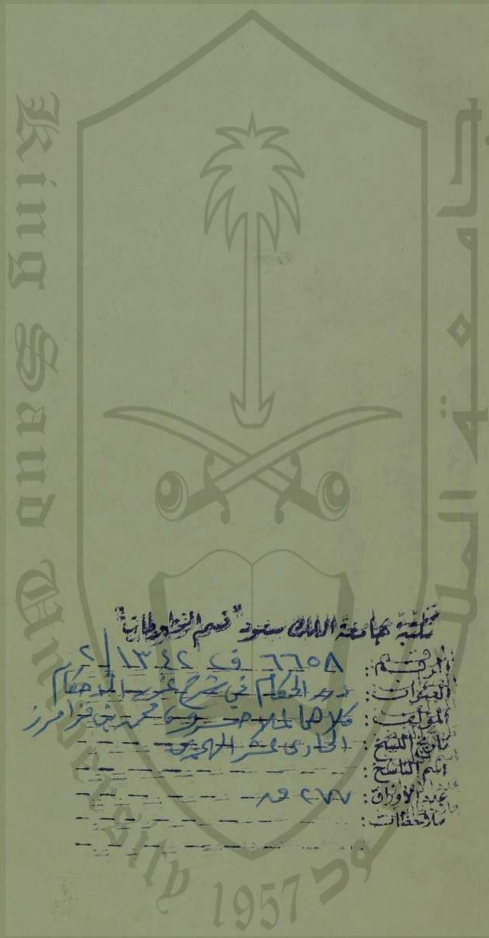 King Saud University
جامعة الملك سعود
1957
مكتبة جامعة الملك سعود "قسم المخطوطات"
الرقم: ٦٦٥٨ ف ١٣٤٢/٢
العنوان: درر الحكام في شرح غرر الأحكام
المؤلف: كلاهما لملا خسرو محمد بن فرامرز
تاريخ النسخ: الحادي عشر الهجري
اسم الناسخ:
عدد الأوراق: ٢٧٧ ق
ملاحظات: